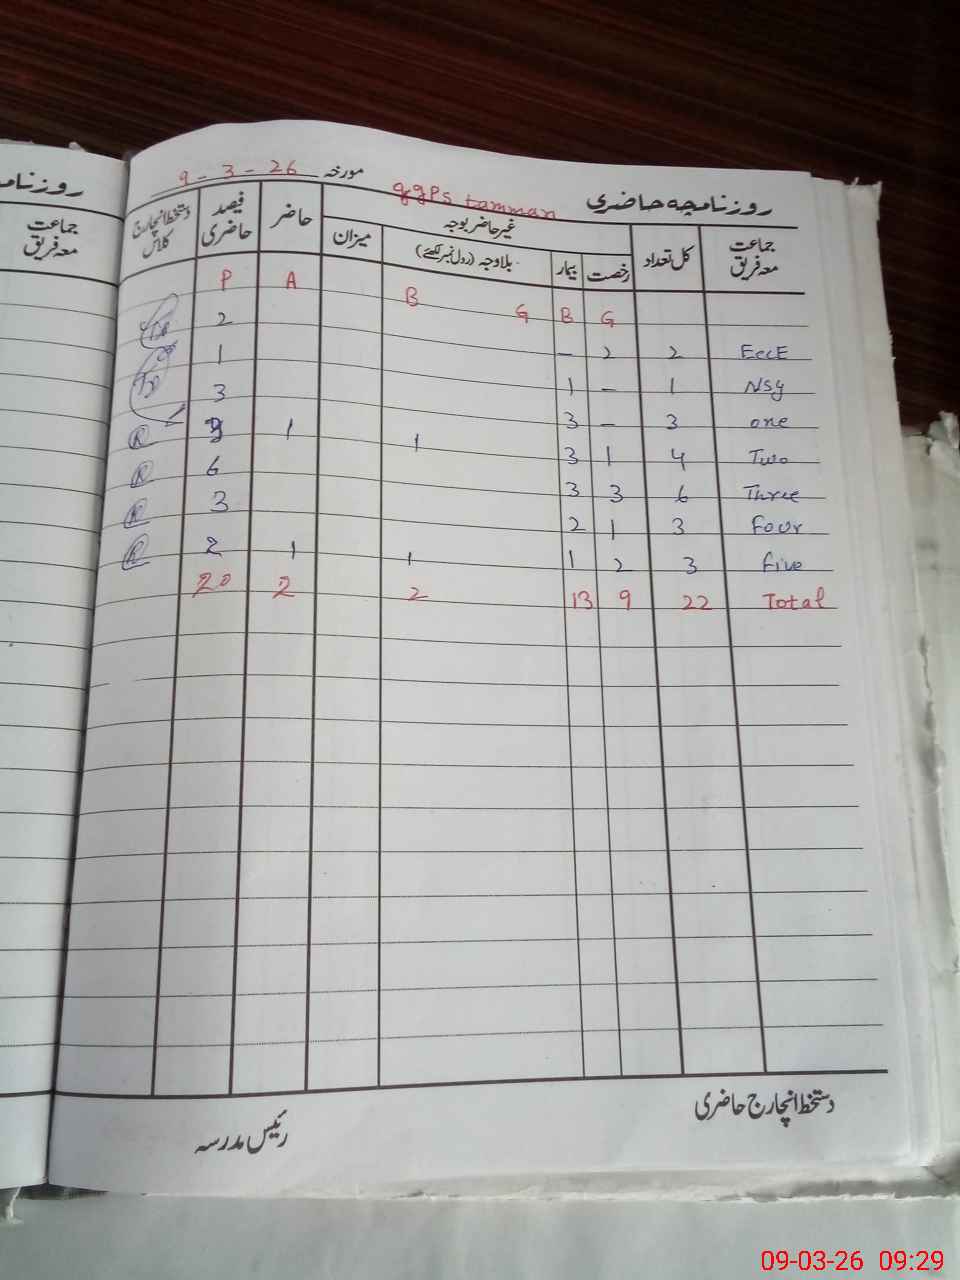 روزنامچہ حاضری ggps tamman مورخہ 9-3-26
جماعت معہ فریق کل تعداد غیر حاضر بوجہ حاضر فیصد حاضری دستخط انچارج کلاس
رخصت بیمار بلاوجہ (رول نمبر لکھئے) میزان
G B G B A P
EccE 2 2 - 2
Nsy 1 - 1 1
one 3 - 3 3
Two 4 1 3 1 1
Three 6 3 3 6
Four 3 1 2 3
five 3 2 1 1 1 2
Total 22 9 13 2 2 20
دستخط انچارج حاضری
رئیس مدرسہ
جماعت
معہ فریق
09-03-26 09:29